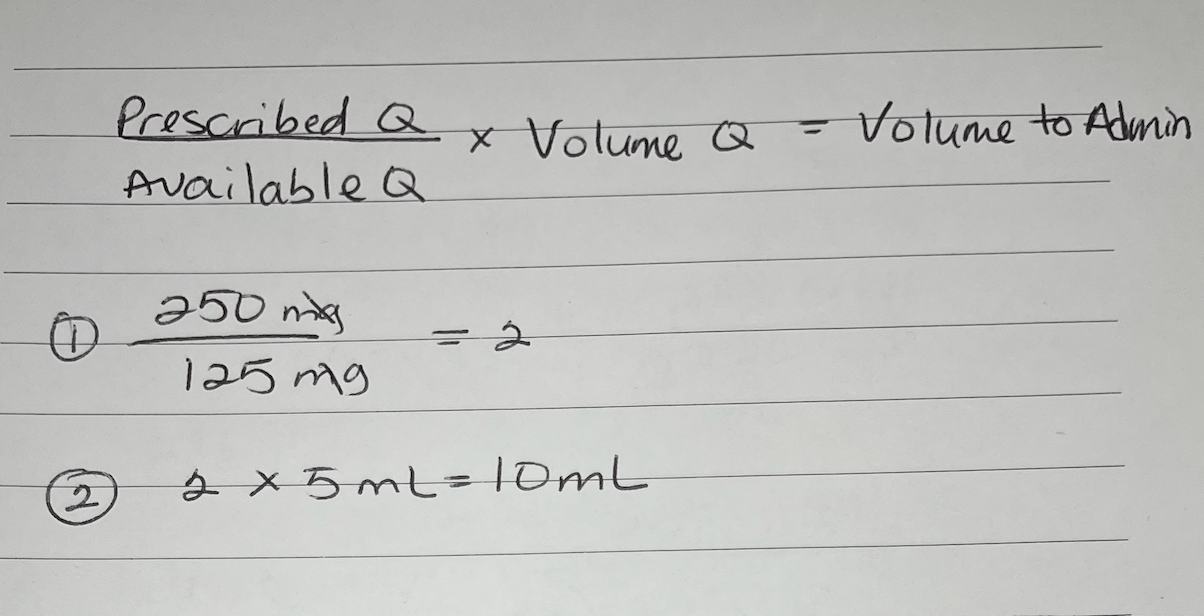 Prescribed Q / Available Q x Volume Q = Volume to Admin
① 250 mg / 125 mg = 2
② 2 x 5 mL = 10 mL